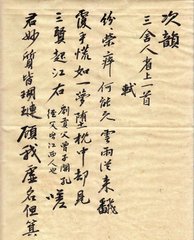 次韻
三舍人省上一首
軾
紛榮瘁何能久雲雨從來翻
覆手慌如一夢墮枕中却見
三賢起江右 劉貢父曾子開孔
經父皆江西人也 嗟
君妙質皆瑚璉顧我虛名但箕